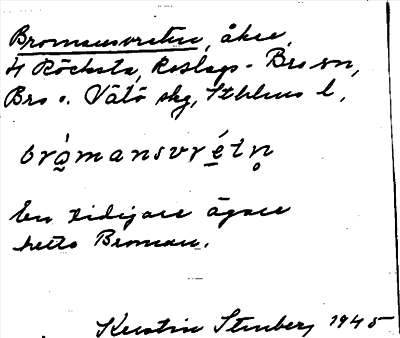 Bromansvreten, åker,
4 Röcksta, Roslags-Bro sn,
Bro o. Vätö skg, Sthlms l.
brámansvrétn̥
En tidigare ägare
hette Broman.
Kerstin Stenberg 1945